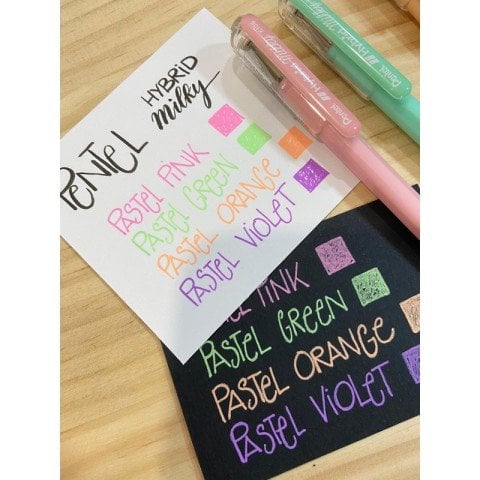 PENTEL
HYBRID
Milky
PASTEL PINK
PASTEL GREEN
PASTEL ORANGE
PASTEL VIOLET
PINK
PASTEL GREEN
PASTEL ORANGE
PASTEL VIOLET
Pentel Hybrid Milky
Pentel Hybrid Milky